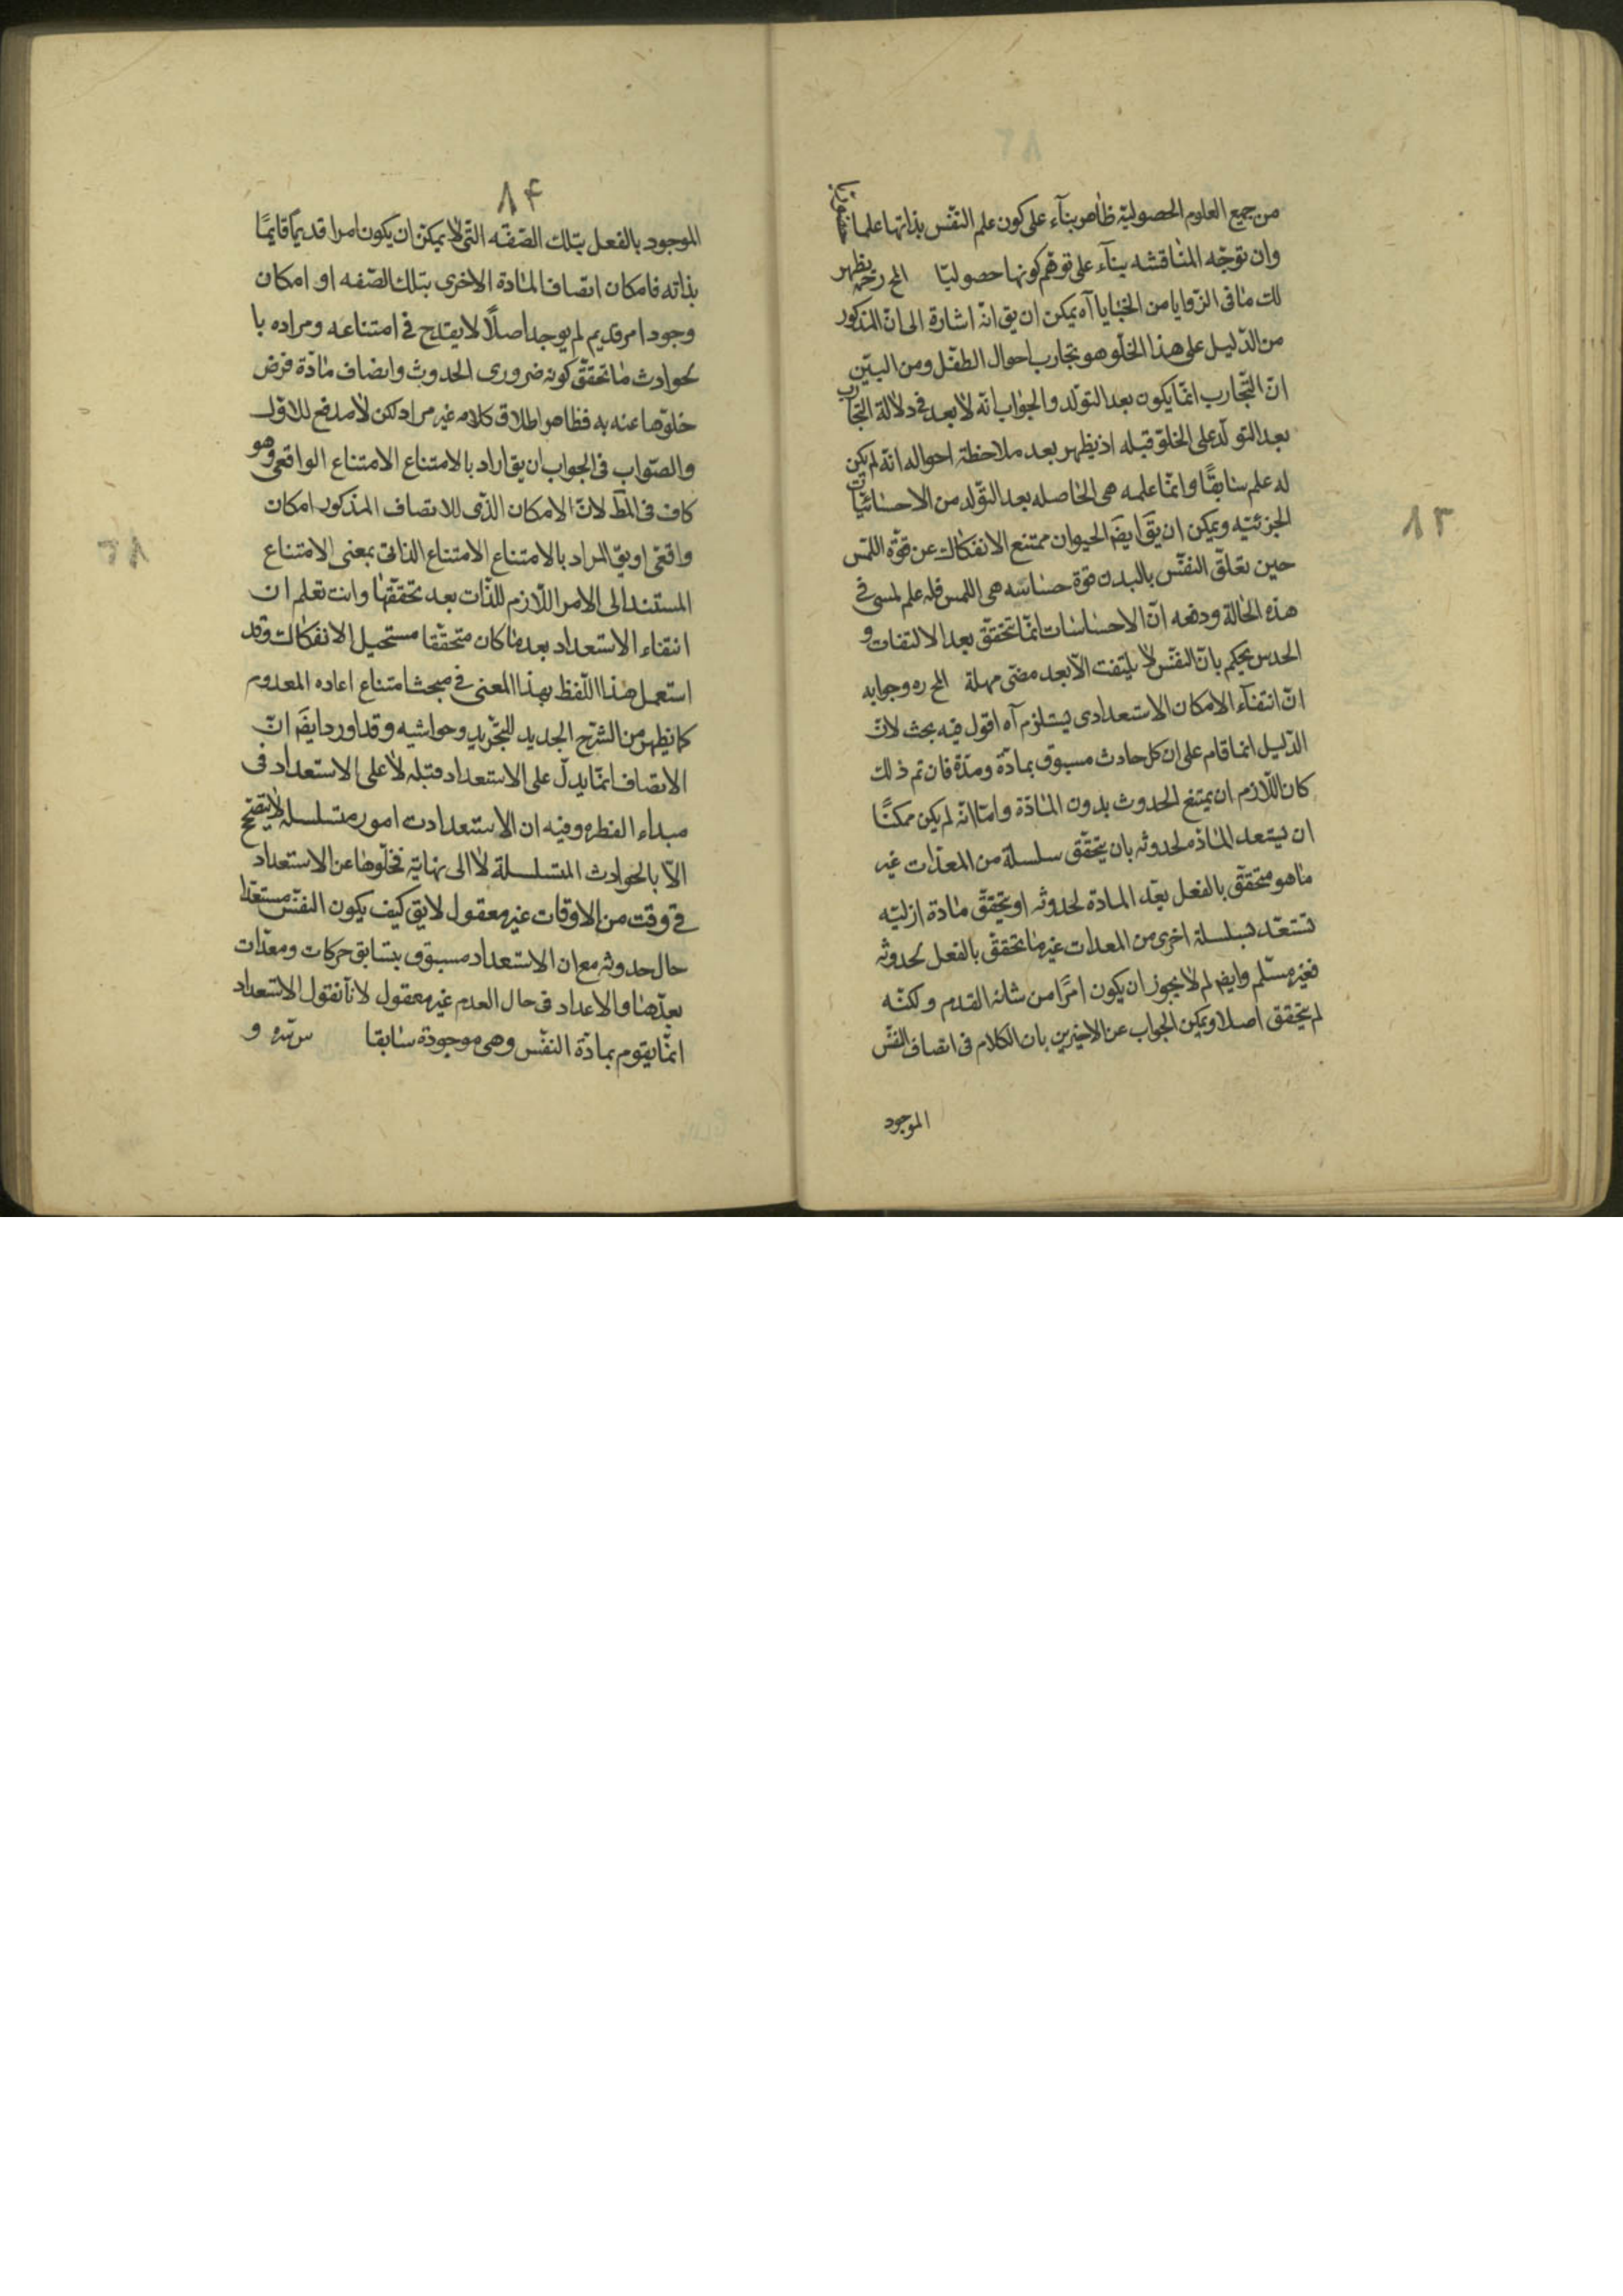 من جميع العلوم الحصولية ظاهر بناء على كون علم النفس بذاتها علما
وان توجّه المناقشه بناء على توهّم كونها حصوليّا المح رحمه يظهر
لك ما فى الزوايا من الخبايا آه يمكن ان يق انه اشارة الى انّ المذكور
من الدّليل على هذا الخلّو هو تجارب احوال الطفل ومن البيّن
انّ التّجارب انّما يكون بعد التولّد والجواب انّه لا بعد فى دلالة التجارب
بعد التولّد على الخلوّ قبله اذ يظهر بعد ملاحظة احواله انه لم يكن
له علم سابقًا وانّما علمه هى الحاصله بعد التولد من الاحسائيّات
الجزئيّه ويمكن ان يق ايضَ الحيوان ممتنع الانفكاك عن قوّة اللمس
حين تعلّق النفس بالبدن قوة حساسه هى اللمس فله علم لمسى فى
هذه الحالة ودفعه انّ الاحساسات انّما تتحقّق بعد الالتفات و
الحدس يحكم بانّ النفس لا يلتفت الّا بعد مضى مهلة المح ره وجوابه
انّ انتفاء الامكان الاستعدادى يستلزم آه اقول فيه بحث لانّ
الدّليل انما قام على ان كل حادث مسبوق بمادّة ومدّة فان تم ذلك
كان اللّازم ان يمتنع الحدوث بدون المادّة وامّا انّه لم يكن ممكنًا
ان يستعد المادّة لحدوثه بان يتحقّق سلسلة من المعدّات غير
ما هو متحقّق بالفعل يعدّ المادّة لحدوثه او يتحقّق مادة ازليّه
تستعدّ بسلسلة اخرى من المعدات غير ما يتحقق بالفعل لحدوثه
فغير مسلّم وايضَ لم لا يجوز ان يكون امرًا من شانه القدم ولكنّه
لم يتحقق اصلا ويمكن الجواب عن الاخيرين بان الكلام فى اتصاف النفس
الموجود
١٣
١۴
الموجود بالفعل بتلك الصّفة التى لا يمكن ان يكون امرا قديمًا قائمًا
بذاته فامكان اتصاف المادة الاخرى بتلك الصّفه او امكان
وجود امر قديم لم يوجد اصلًا لا يقدح فى امتناعه ومراده با
لحوادث ما تحقّق كونه ضرورى الحدوث واتصاف مادّة فرض
خلوّها عنه به فظاهر اطلاق كلامه غير مراد لكن لا مدفع للاول
والصّواب فى الجواب ان يق اراد بالامتناع الامتناع الواقعى وهو
كاف فى المط لانّ الامكان الّذى للاتصاف المذكور امكان
واقعى او يق المراد بالامتناع الامتناع الذاتى بمعنى الامتناع
المستند الى الامر اللّازم للذّات بعد تحقّقها وانت تعلم ان
انتفاء الاستعداد بعد ما كان متحقّقا مستحيل الانفكاك وقد
استعمل هذا اللّفظ بهذا المعنى فى مبحث امتناع اعاده المعدوم
كما يظهر من الشرح الجديد للتجريد وحواشيه وقد اورد ايضَ انّ
الاتصاف انّما يدلّ على الاستعداد قبله لا على الاستعداد فى
مبداء الفطره وفيه ان الاستعدادت امور متسلسلة لا يتصحّح
الّا بالحوادث المتسلسلة لا الى نهاية فخلّوها عن الاستعداد
فى وقت من الاوقات غير معقول لا يق كيف يكون النفس مستعدّا
حال حدوثه مع ان الاستعداد مسبوق بتسابق حركات ومعدّات
يعدّها والاعداد فى حال العدم غير معقول لانّا نقول الاستعداد
انّما يقوم بمادّة النفس وهى موجودة سابقا و